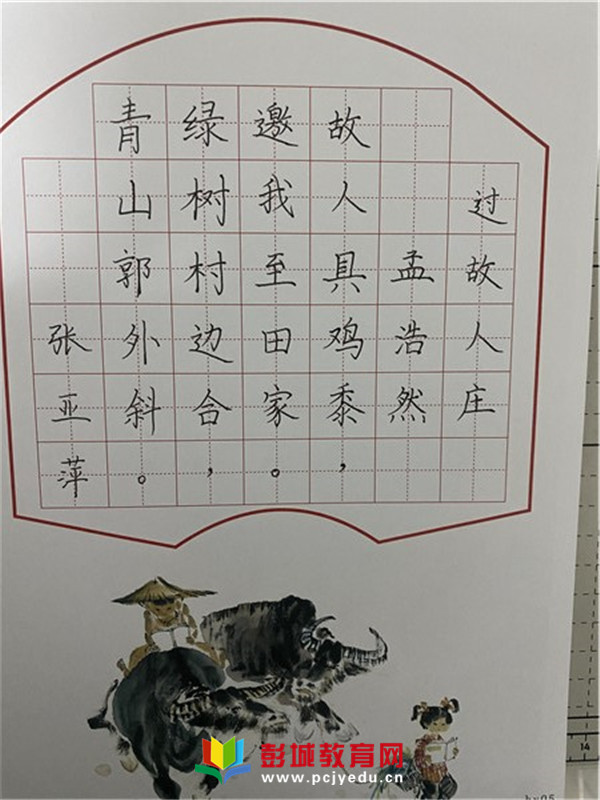 过故人庄
孟浩然
故人具鸡黍，
邀我至田家。
绿树村边合，
青山郭外斜。
张亚萍
彭城教育网
www.pcjyedu.cn
14